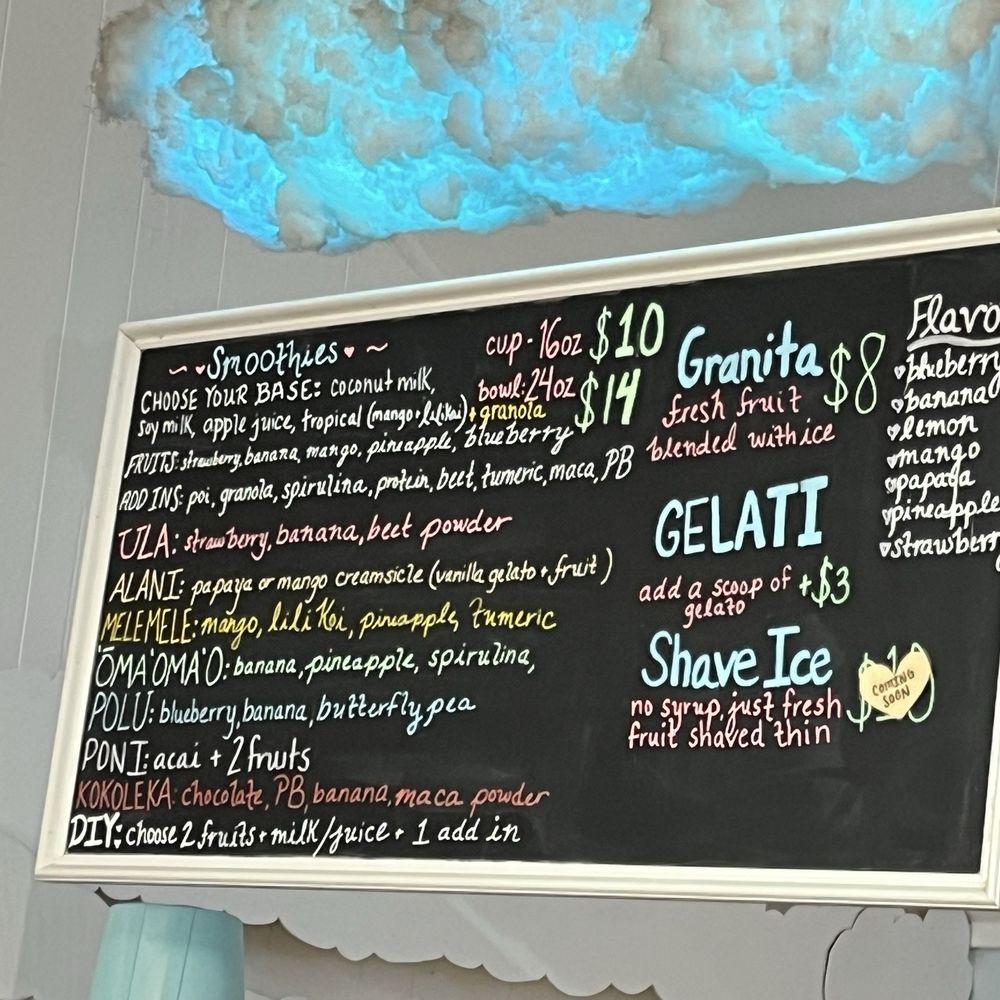 ~ ♥Smoothies♥ ~
cup·16oz $10
CHOOSE YOUR BASE: coconut milk,
bowl:24oz $14
soy milk, apple juice, tropical (mango+lilikoi) +granola
FRUITS: strawberry, banana, mango, pineapple, blueberry
ADD INS: poi, granola, spirulina, protein, beet, tumeric, maca, PB
ULA: strawberry, banana, beet powder
ALANI: papaya or mango creamsicle (vanilla gelato + fruit)
MELEMELE: mango, lilikoi, pineapple, tumeric
ʻŌMAʻOMAʻO: banana, pineapple, spirulina,
POLU: blueberry, banana, butterfly pea
PONI: acai + 2 fruits
KOKOLEKA: chocolate, PB, banana, maca powder
DIY: choose 2 fruits + milk/juice + 1 add in
Granita $8
fresh fruit
blended with ice
GELATI
add a scoop of +$3
gelato
Shave Ice
COMING
SOON
no syrup, just fresh
fruit shaved thin
Flavo
♥blueberry
♥banana
♥lemon
♥mango
♥papaya
♥pineapple
♥strawberr